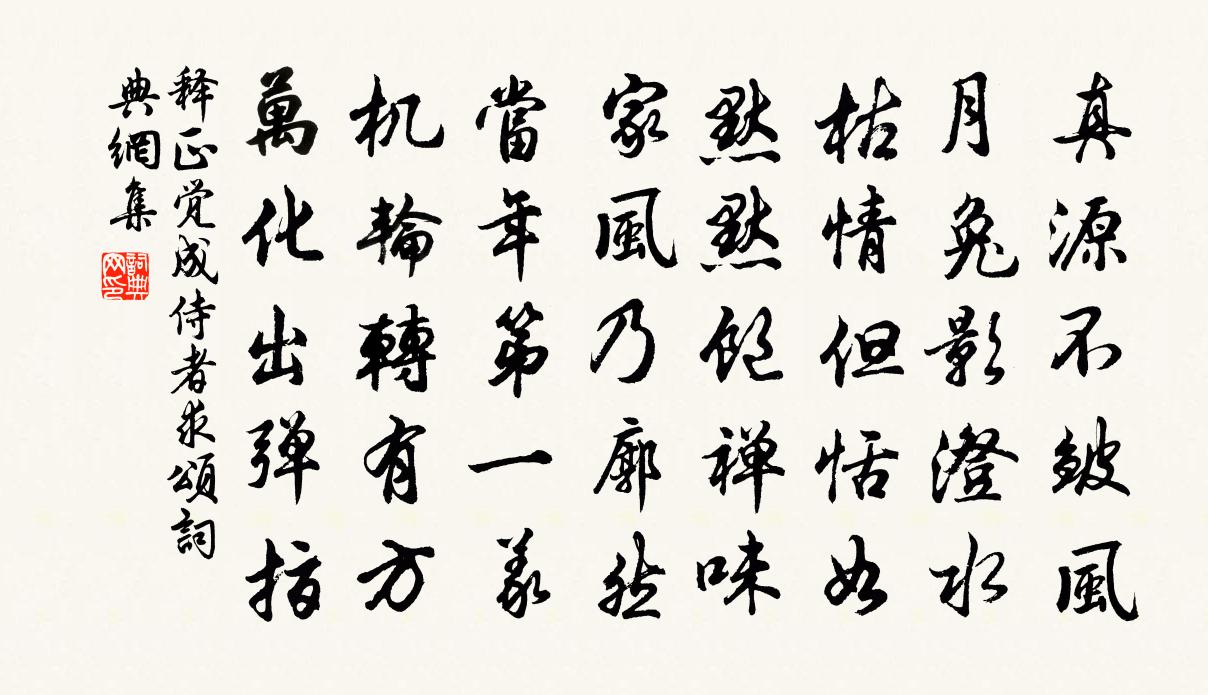 真源不皺風
月兔影澄水
枯情但恬如
默默飽禅味
家風乃廓然
當年第一義
机輪轉有方
萬化出弹指
释正覚成侍者求頌詞
典網集
詞典网印